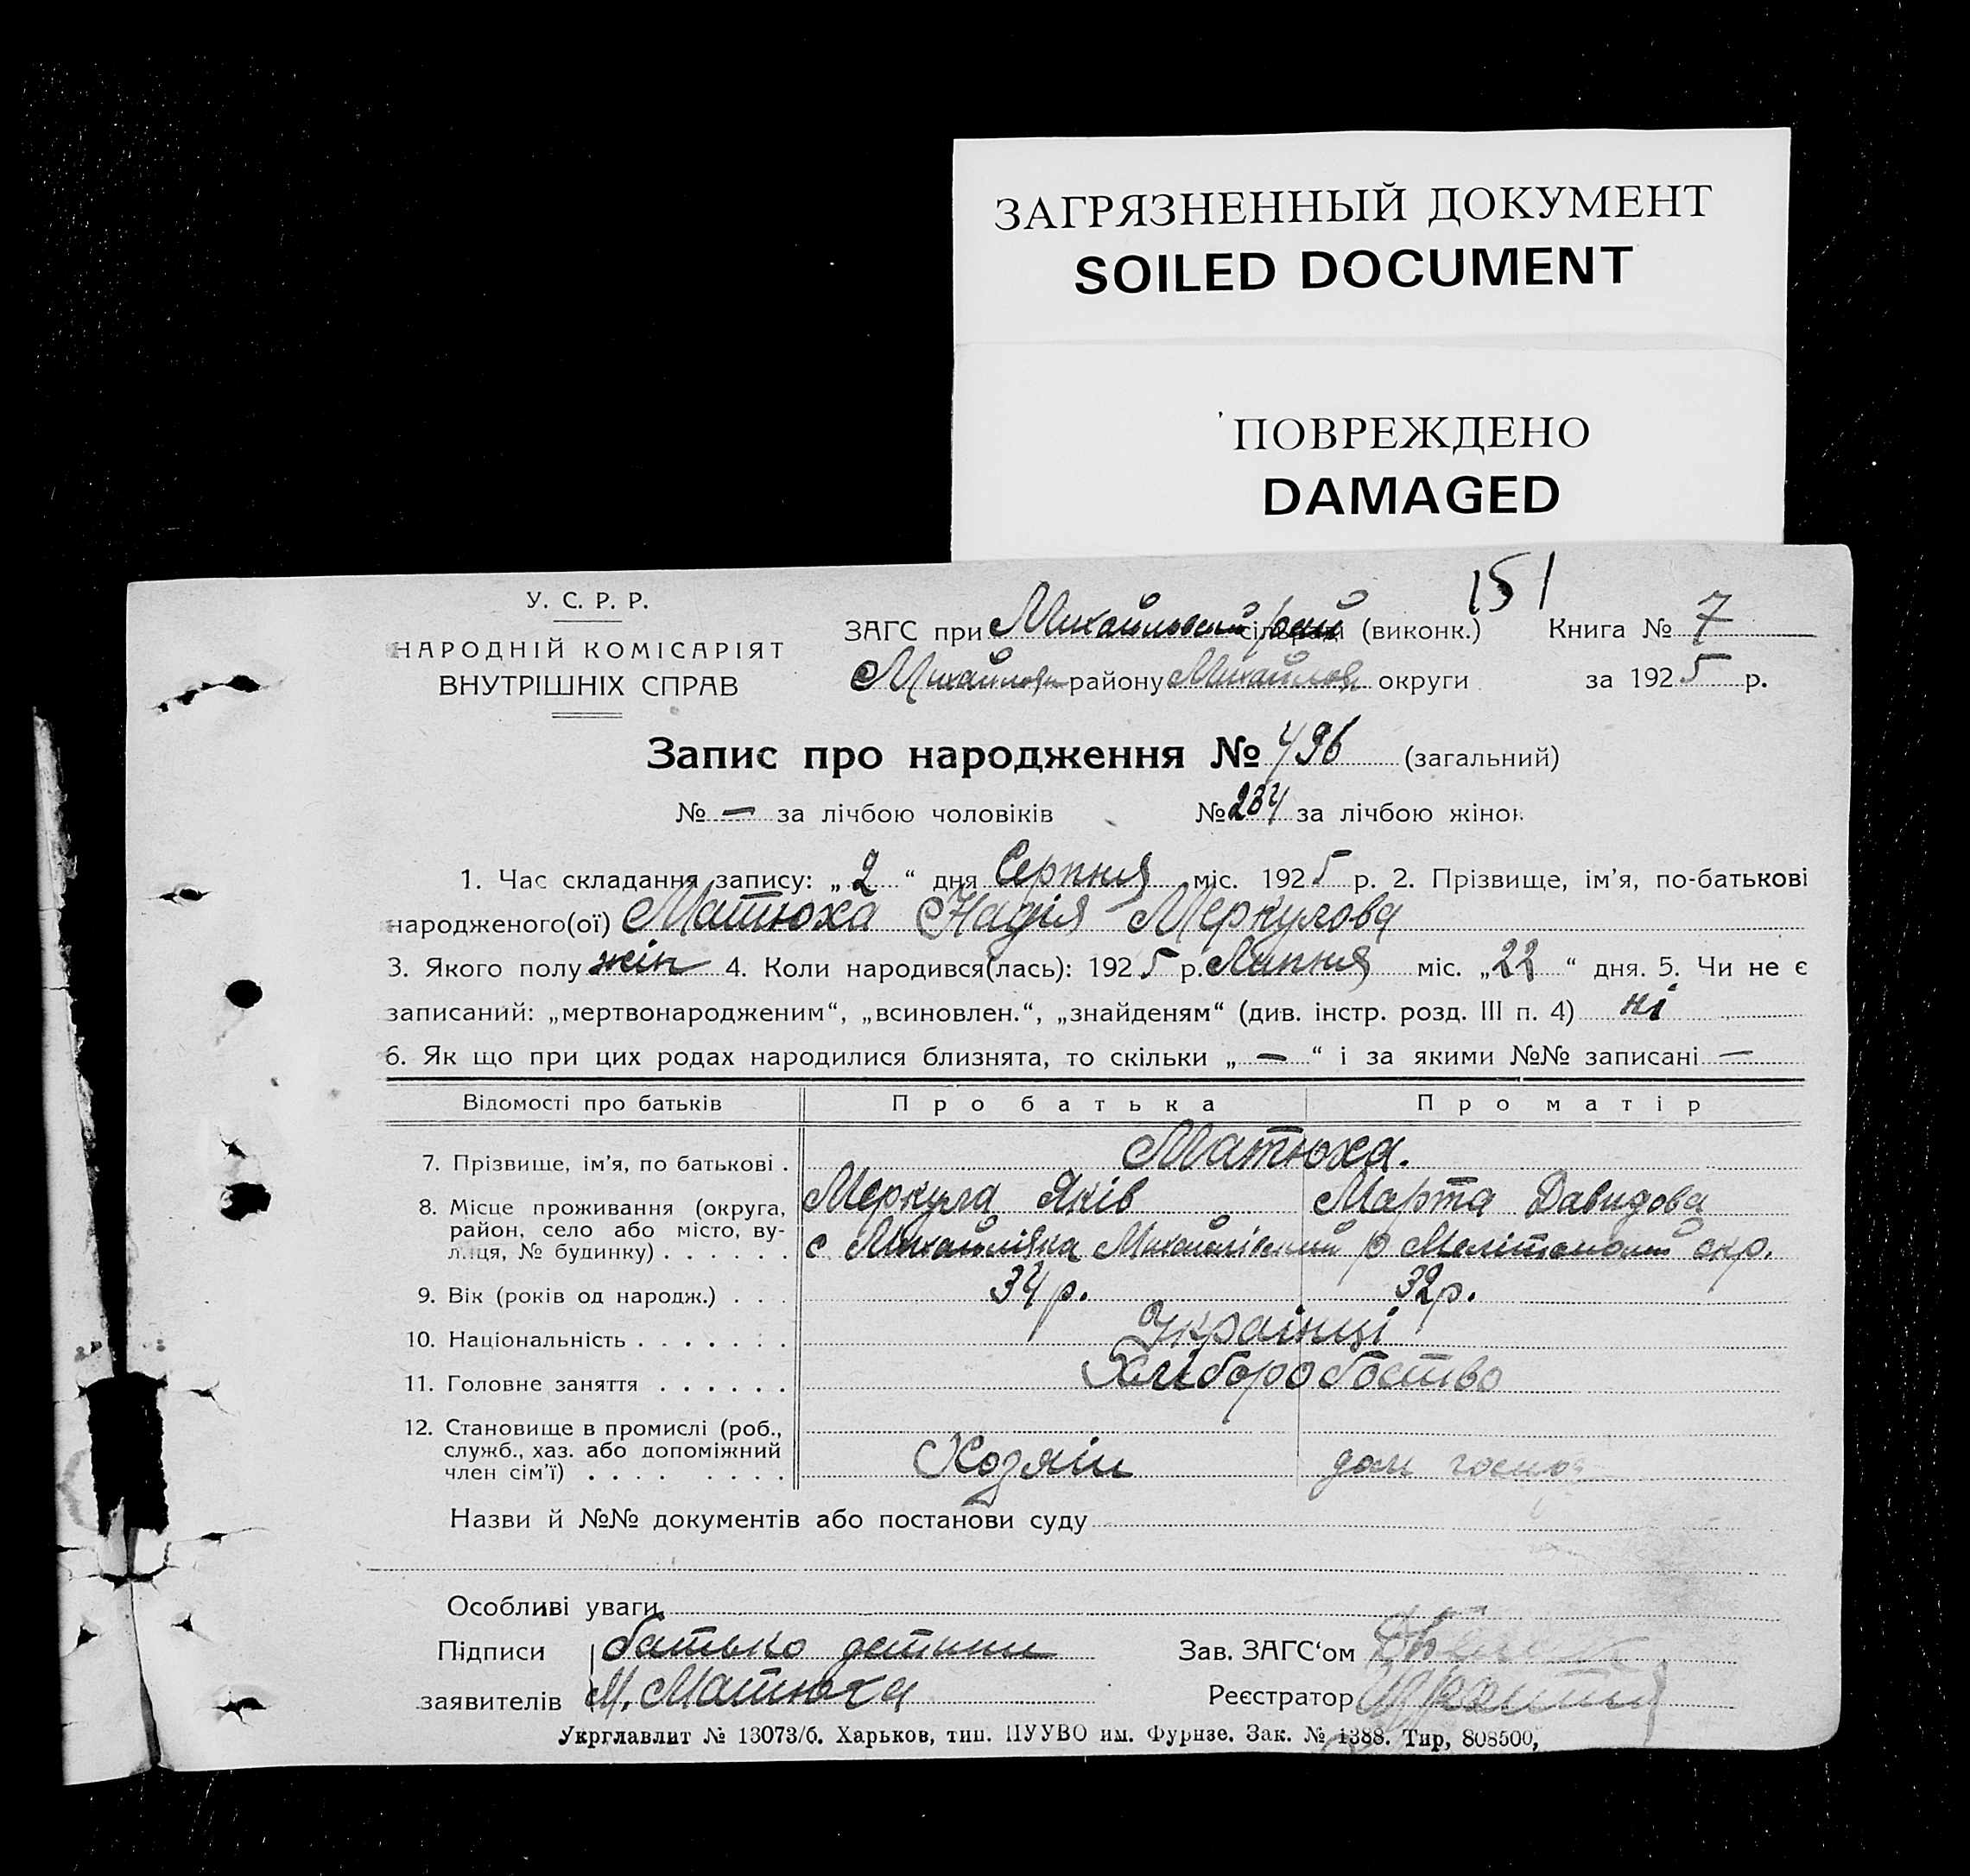 ЗАГРЯЗНЕННЫЙ ДОКУМЕНТ
SOILED DOCUMENT
ПОВРЕЖДЕНО
DAMAGED
151
У. С. Р. Р.
НАРОДНІЙ КОМІСАРІЯТ
ВНУТРІШНІХ СПРАВ
ЗАГС при (виконк.) Книга № 7
району округи за 1925 р.
Запис про народження № 496 (загальний)
№ — за лічбою чоловіків № 234 за лічбою жінок
1. Час складання запису: „2“ дня Серпня міс. 1925 р. 2. Прізвище, ім’я, по-батькові
народженого(ої) Матюха Надія Меркулова
3. Якого полу жін 4. Коли народився(лась): 1925 р. Липня міс. „22“ дня. 5. Чи не є
записаний: „мертвонародженим“, „всиновлен.“, „знайденям“ (див. інстр. розд. III п. 4) ні
6. Як що при цих родах народилися близнята, то скільки „—“ і за якими №№ записані —
Відомості про батьків Про батька Про матір
7. Прізвище, ім’я, по батькові . Матюха.
Меркула Яків Марта Давидова
8. Місце проживання (округа,
район, село або місто, ву-
лиця, № будинку) . . . . . . с Михайлівка Михайлівський р Мелітопольс окр.
9. Вік (років од народж.) . . . 34 р. 32 р.
10. Національність . . . . . . . Українці
11. Головне заняття . . . . . . Хліборобство
12. Становище в промислі (роб.,
служб., хаз. або допоміжний
член сім’ї) . . . . . . . . Хозяїн дом госпо
Назви й №№ документів або постанови суду
Особливі уваги
Підписи батько детини Зав. ЗАГС‘ом
заявителів М. Матюха Реєстратор
Укрглавлит № 13073/б. Харьков, тип. ПУУВО им. Фрунзе. Зак. № 1388. Тир, 808500,